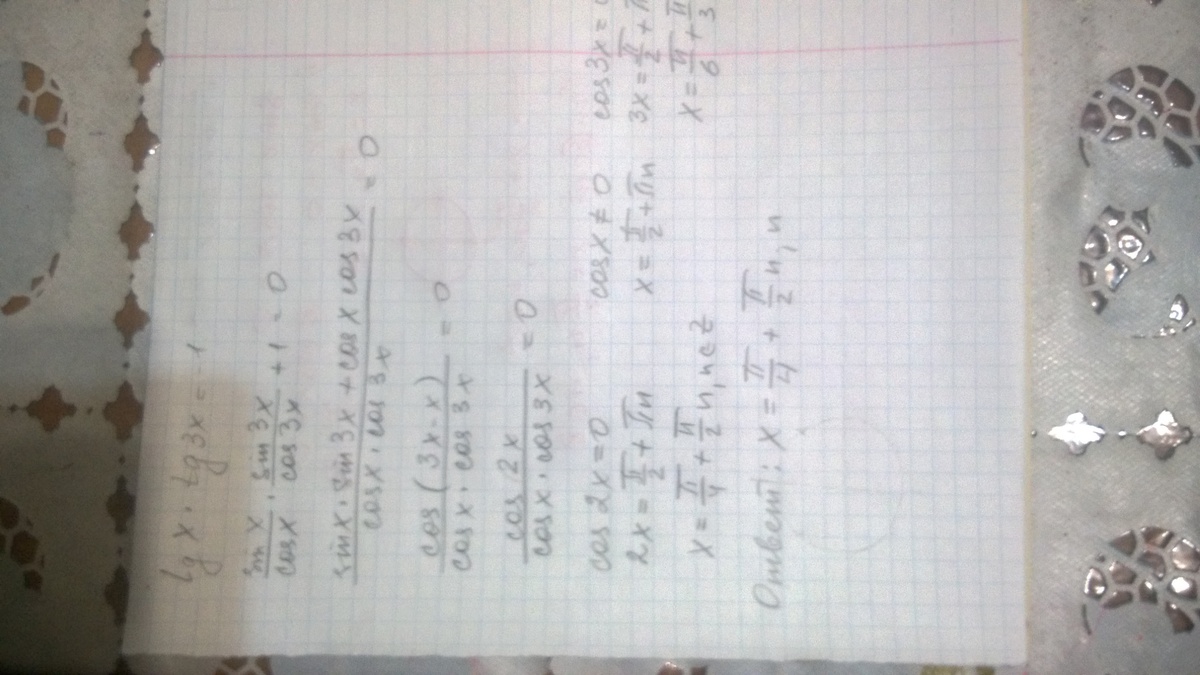 tg x · tg 3x = -1
sin x / cos x · sin 3x / cos 3x + 1 = 0
sin x · sin 3x + cos x cos 3x / cos x · cos 3x = 0
cos (3x - x) / cos x · cos 3x = 0
cos 2x / cos x · cos 3x = 0
cos 2x = 0 cos x ≠ 0 cos 3x =
2x = π/2 + πn x = π/2 + πn 3x = π/2 +
x = π/4 + π/2 n, n∈Z x = π/6 + π/3
Ответ: x = π/4 + π/2 n, n